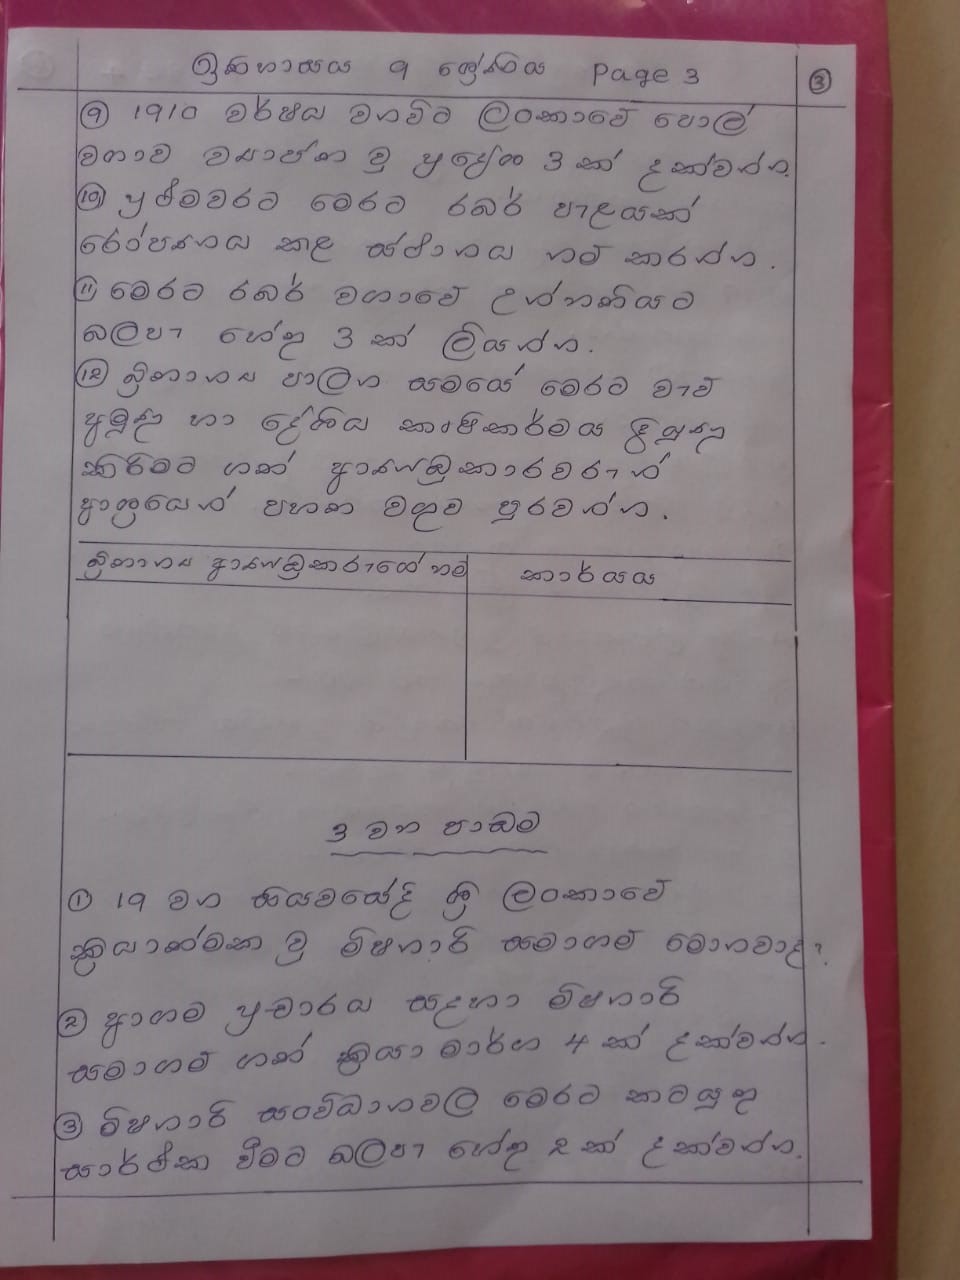 ඉතිහාසය 9 ශ්‍රේණිය Page 3 ③
⑨ 1910 වර්ෂය වනවිට ලංකාවේ පොල්
වගාව ව්‍යාප්ත වූ ප්‍රදේශ 3 ක් දක්වන්න.
⑩ ප්‍රථමවරට මෙරට රබර් පැළයක්
රෝපණය කළ ස්ථානය නම් කරන්න.
⑪ මෙරට රබර් වගාවේ උන්නතියට
බලපෑ හේතු 3 ක් ලියන්න.
⑫ බ්‍රිතාන්‍ය පාලන සමයේ මෙරට වැව්
අමුණු හා දේශීය කෘෂිකර්මය දියුණු
කිරීමට ගත් ආණ්ඩුකාරවරුන්
ආශ්‍රයෙන් පහත වගුව පුරවන්න.
බ්‍රිතාන්‍ය ආණ්ඩුකරුගේ නම කාර්යය
3 වන පාඩම
① 19 වන සියවසේදී ශ්‍රී ලංකාවේ
ක්‍රියාත්මක වූ මිෂනාරි සමාගම් මොනවාද?
② ආගම ප්‍රචාරය සඳහා මිෂනාරි
සමාගම් ගත් ක්‍රියා මාර්ග 4 ක් දක්වන්න.
③ මිෂනාරි සංවිධානවල මෙරට කටයුතු
සාර්ථක වීමට බලපෑ හේතු 2 ක් දක්වන්න.